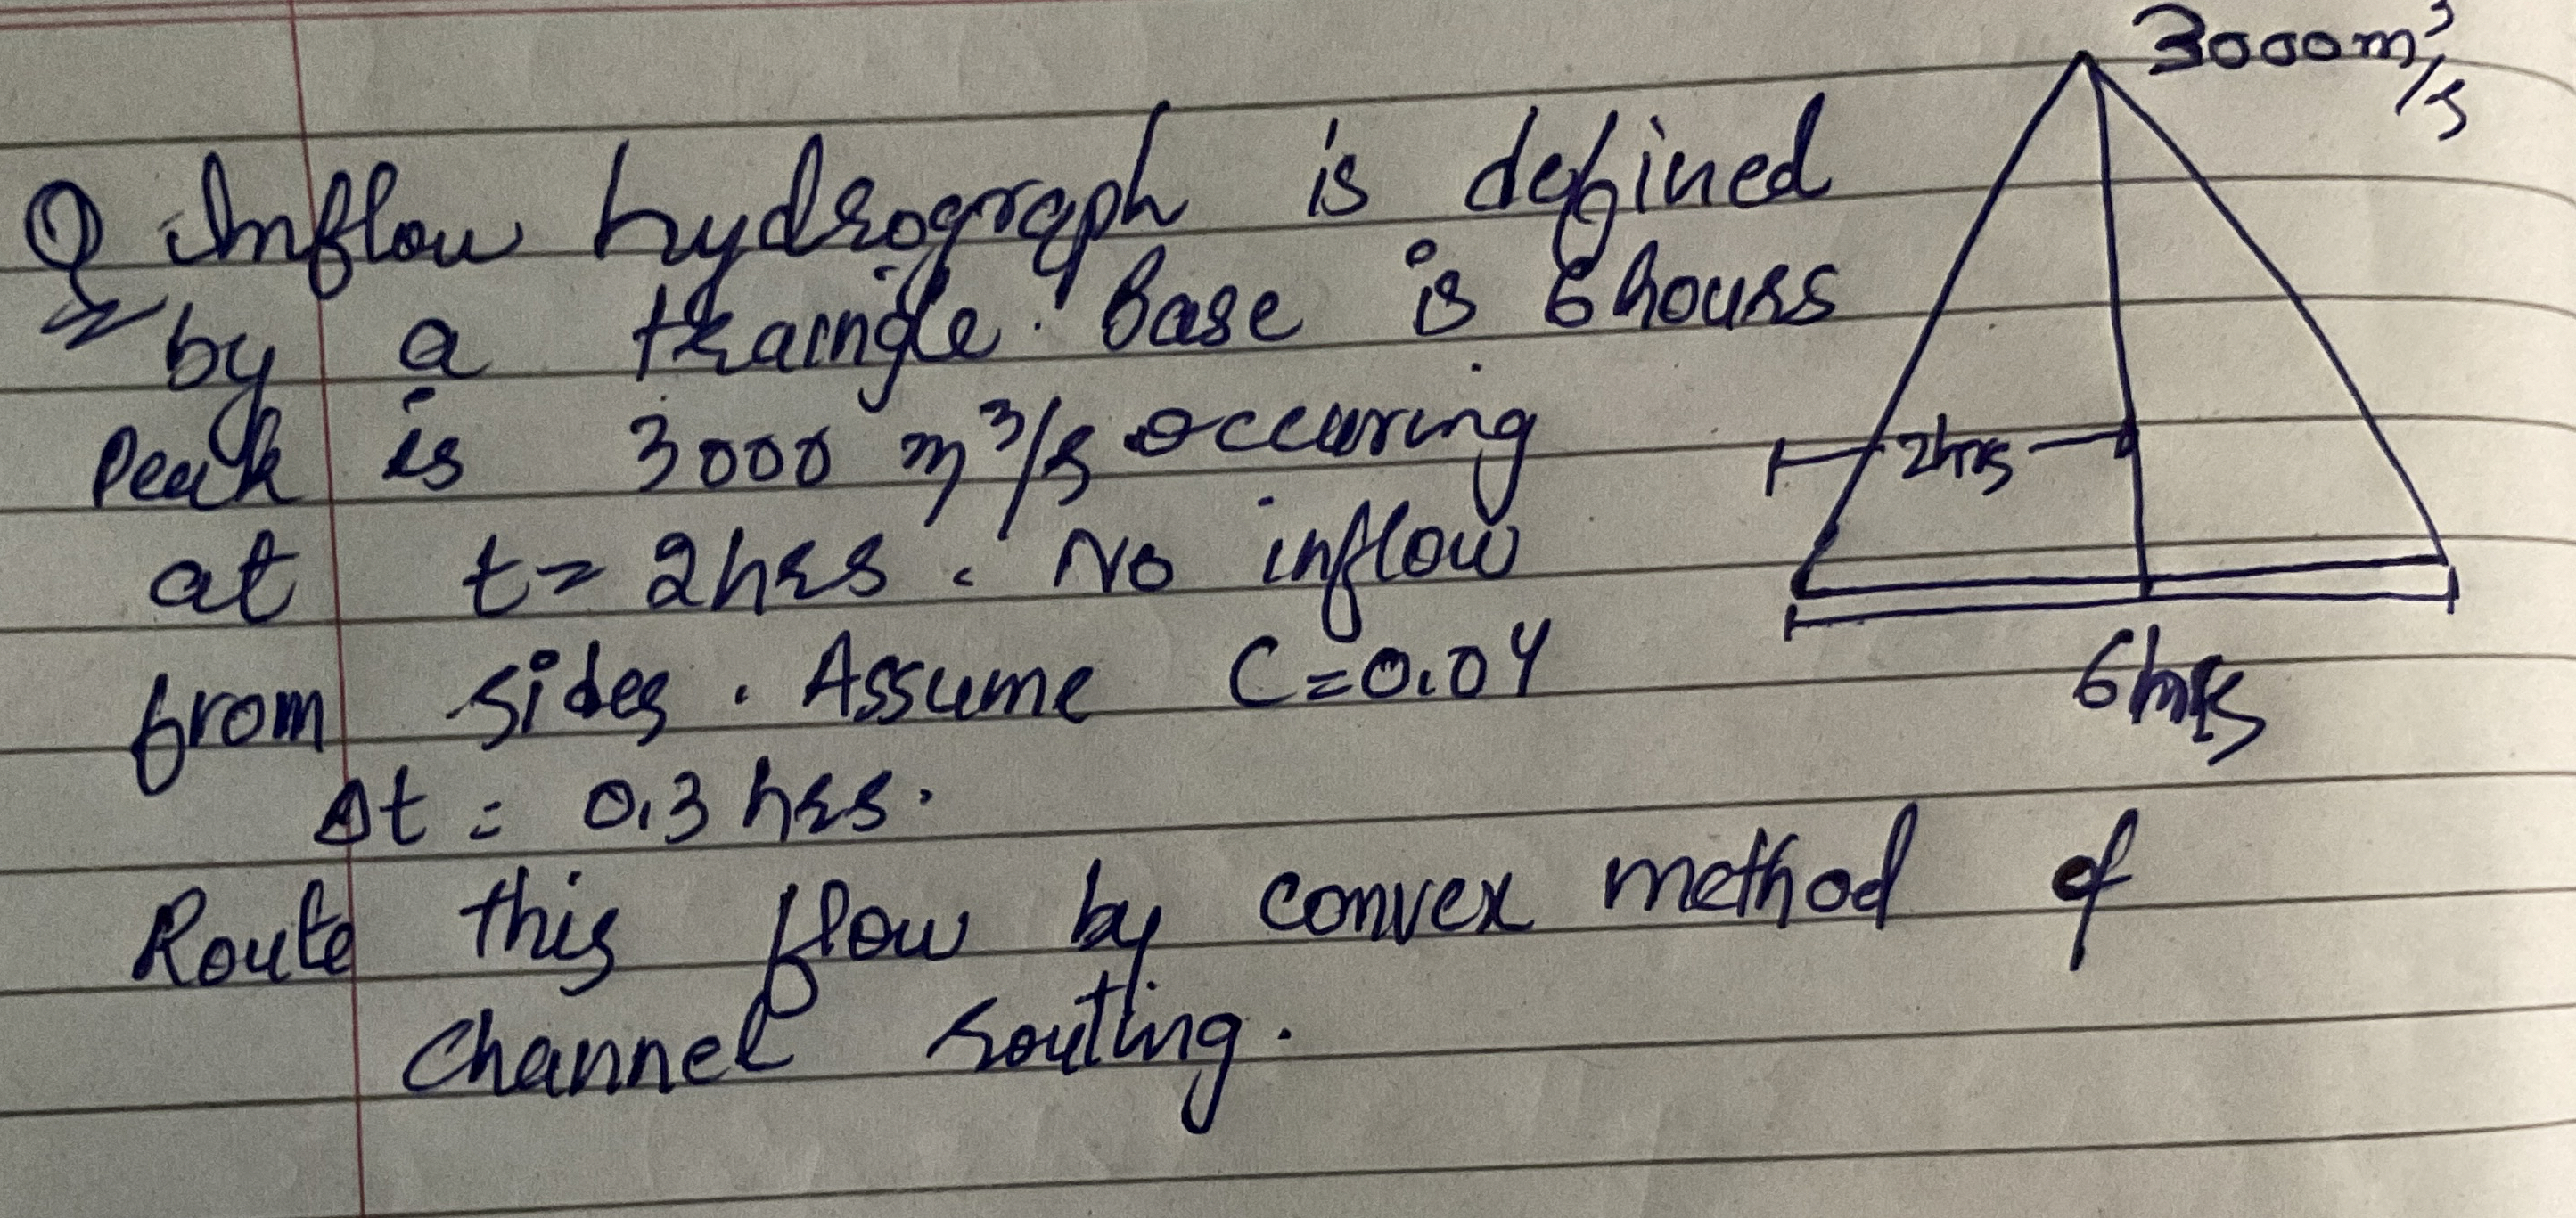 3000m³/s
Q Inflow hydrograph is defined
by a traingle. Base is 6 hours
Peak is 3000 m³/s occuring
2hrs
at t = 2hrs. No inflow
from sides. Assume C=0.04
6hrs
Δt = 0.3 hrs.
Route this flow by convex method of
channel routing.